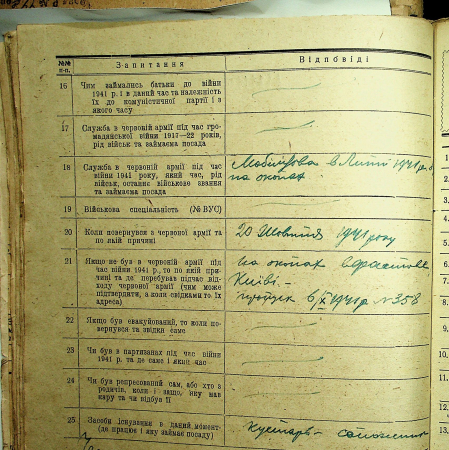 №№ п-п. Запитання Відповіді
16 Чим займались батьки до війни
1941 р. і в даний час та належність
їх до комуністичної партії і з
якого часу
17 Служба в червоній армії під час гро-
мадянської війни 1917—22 років,
рід військ та займаєма посада
18 Служба в червоній армії під час
війни 1941 року, який час, рід
військ, останнє військове звання
та займаєма посада
в 1941 р.
на окопах
19 Військова спеціальність (№ ВУС)
20 Коли повернувся з червоної армії та
по якій причині
20 Жовтня 1941 року
21 Якщо не був в червоній армії під
час війни 1941 р., то по якій при-
чині та де перебував підчас від-
ходу червоної армії (чим може
підтвердити, а коли свідками то їх
адреса)
на окопах
Київі. –
пропуск 6/X 1941 р №358
22 Якщо був евакуйований, то коли по-
вернувся та звідки саме
23 Чи був в партизанах під час війни
1941 р. та де саме і який час
24 Чи був репресований сам, або хто з
родичів, коли і защо, яку мав
кару та чи відбув її
25 Засоби існування в даний момент
(де працює і яку займає посаду)
Кустарь – сапожник